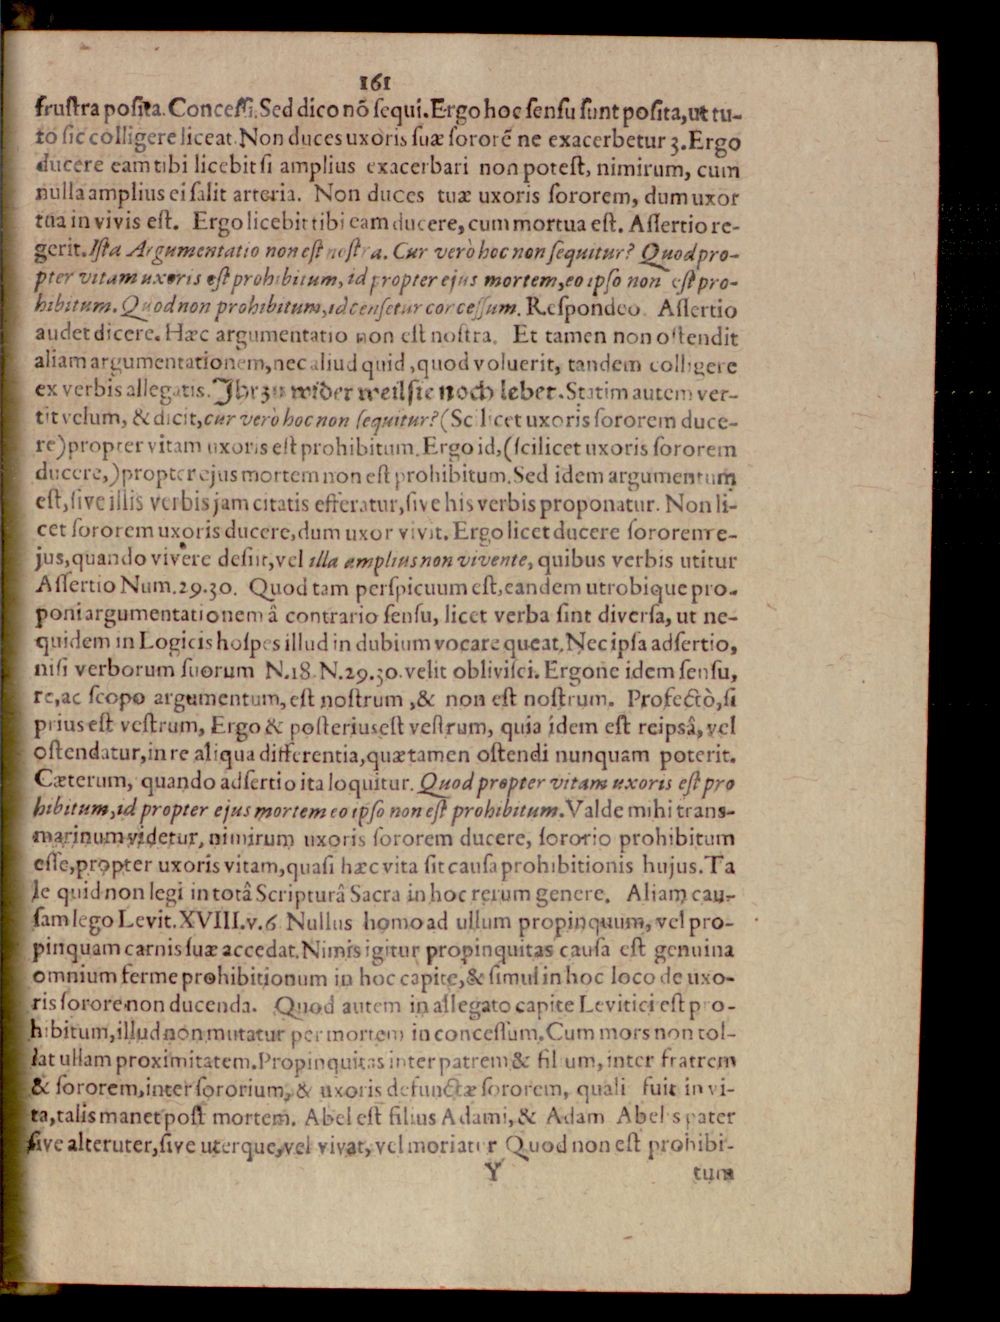 161
frustra posita. Concessi. Sed dico nõ sequi. Ergo hoc sensu sunt posita, ut tu-
to sic colligere liceat. Non duces uxoris suæ sororẽ ne exacerbetur 3. Ergo
ducere eam tibi licebit si amplius exacerbari non potest, nimirum, cum
nulla amplius ei salit arteria. Non duces tuæ uxoris sororem, dum uxor
tua in vivis est. Ergo licebit tibi eam ducere, cum mortua est. Assertio re-
gerit. Ista Argumentatio non est nostra. Cur verò hoc non sequitur? Quod pro-
pter vitam uxoris est prohibitum, id propter ejus mortem, eo ipso non est pro-
hibitum. Quod non prohibitum, id censetur concessum. Respondeo Assertio
audet dicere. Hæc argumentatio non est nostra. Et tamen non ostendit
aliam argumentationem, nec aliud quid, quod voluerit, tandem colligere
ex verbis allegatis. Ihr zu wider weil sie noch lebet. Statim autem ver-
tit velum, & dicit, cur verò hoc non sequitur? (Scilicet uxoris sororem duce-
re) propter vitam uxoris est prohibitum. Ergo id, (scilicet uxoris sororem
ducere,) propter ejus mortem non est prohibitum. Sed idem argumentum
est, sive illis verbis jam citatis efferatur, sive his verbis proponatur. Non li-
cet sororem uxoris ducere, dum uxor vivit. Ergo licet ducere sororem e-
jus, quando vivere desiit, vel illa amplius non vivente, quibus verbis utitur
Assertio Num. 29. 30. Quod tam perspicuum est, eandem utrobique pro-
poni argumentationem â contrario sensu, licet verba sint diversa, ut ne-
quidem in Logicis hospes illud in dubium vocare queat. Nec ipsa adsertio,
nisi verborum suorum N. 18. N. 29. 30. velit oblivisci. Ergone idem sensu,
re, ac scopo argumentum, est nostrum, & non est nostrum. Profectò, si
prius est vestrum, Ergo & posterius est vestrum, quia idem est reipsâ, vel
ostendatur, in re aliqua differentia, quæ tamen ostendi nunquam poterit.
Cæterum, quando adsertio ita loquitur. Quod propter vitam uxoris est pro
hibitum, id propter ejus mortem eo ipso non est prohibitum. Valde mihi trans-
marinum videtur, nimirum uxoris sororem ducere, sororio prohibitum
esse, propter uxoris vitam, quasi hæc vita sit causa prohibitionis hujus. Ta
le quid non legi in totâ Scripturâ Sacra in hoc rerum genere. Aliam cau-
sam lego Levit. XVIII. v. 6 Nullus homo ad ullum propinquum, vel pro-
pinquam carnis suæ accedat. Nimis igitur propinquitas causa est genuina
omnium ferme prohibitionum in hoc capite, & simul in hoc loco de uxo-
ris sorore non ducenda. Quod autem in allegato capite Levitici est pro-
hibitum, illud non mutatur per mortem in concessum. Cum mors non tol-
lat ullam proximitatem. Propinquitas inter patrem & filium, inter fratrem
& sororem, inter sororium, & uxoris defunctæ sororem, quali fuit in vi-
ta, talis manet post mortem. Abel est filius Adami, & Adam Abelis pater
sive alteruter, sive uterque, vel vivat, vel moriatur Quod non est prohibi-
Y tum